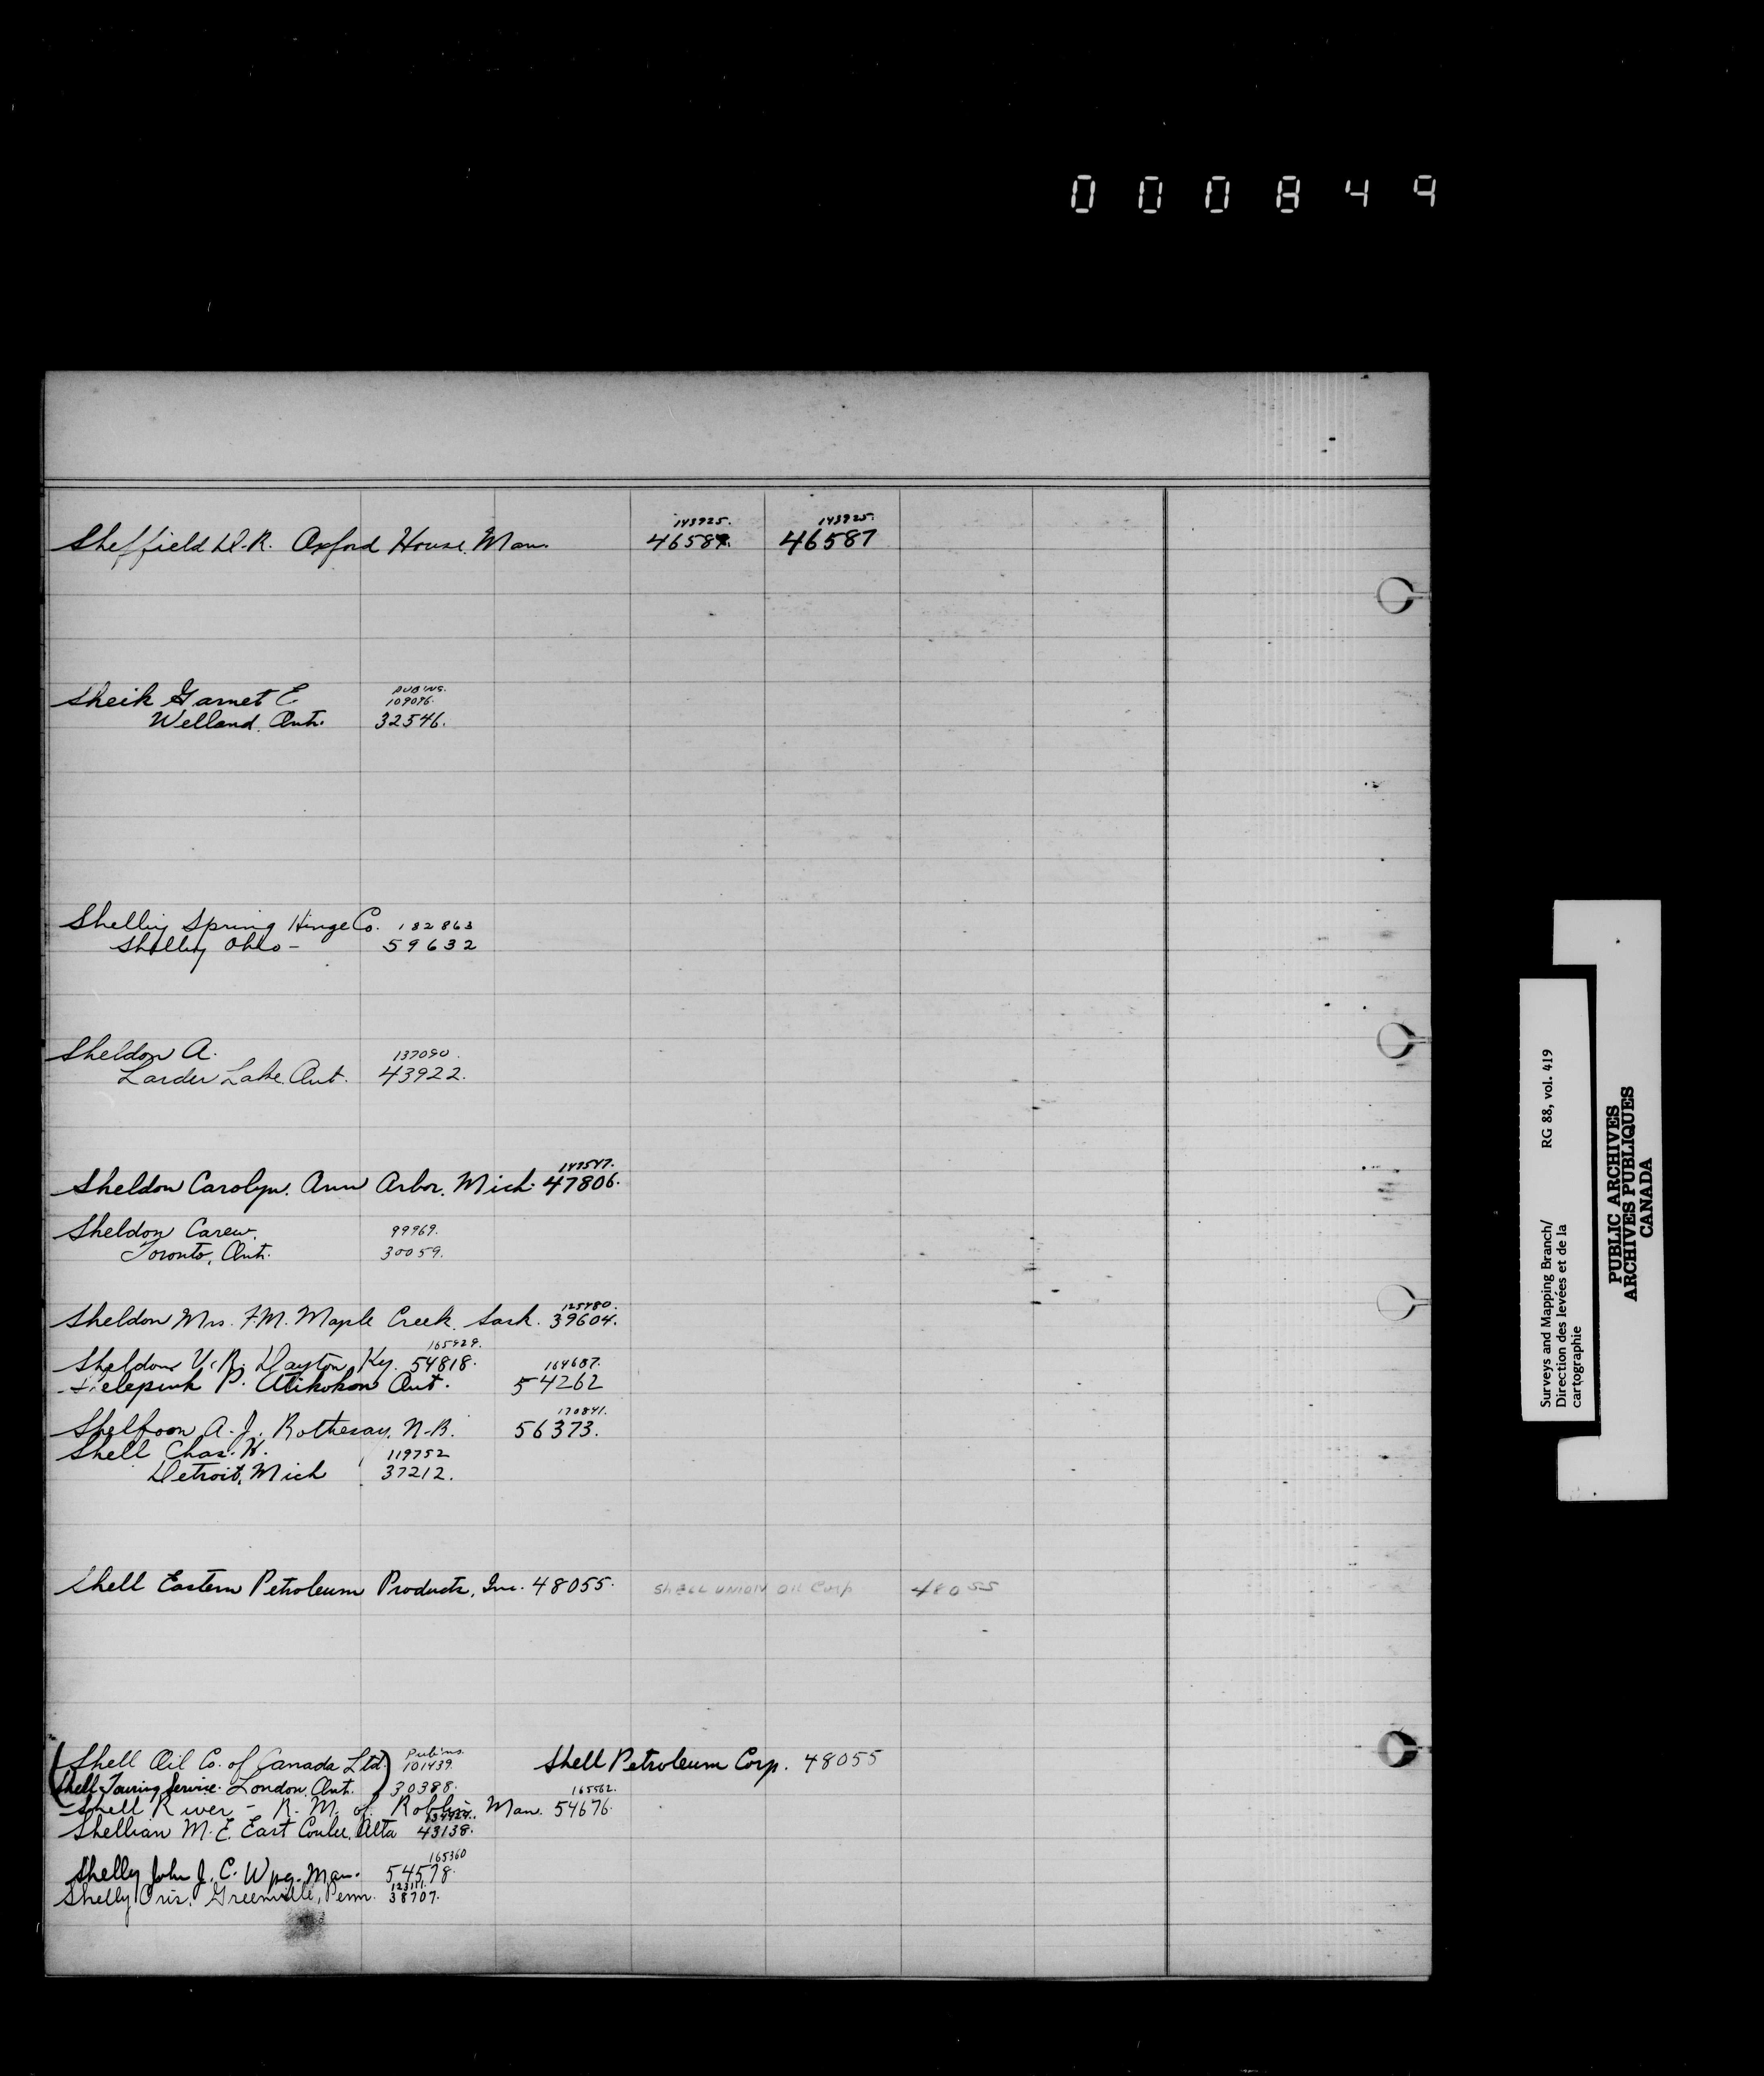 000849
143925. 143925.
Sheffield D.R. Oxford House, Man. 46587. 46587
Pub'ns.
Sheik Garnet E. 109096.
Welland, Ont. 32546.
Shelby Spring Hinge Co. 182863
Shelby Ohio - 59632
Sheldon A. 137090.
Larder Lake, Ont. 43922.
147547.
Sheldon Carolyn. Ann Arbor, Mich. 47806.
Sheldon Carew. 99969.
Toronto, Ont. 30059.
125480.
Sheldon Mrs. F.M. Maple Creek, Sask. 39604.
165929.
Sheldon V.R. Dayton, Ky. 54818. 164687.
P. Atikokan Ont. 54262
170841.
Shelfoon A.J. Rothesay, N.B. 56373.
Shell Chas. H. 119752
Detroit, Mich 37212.
Shell Eastern Petroleum Products, Inc. 48055. SHELL UNION OIL Corp 48055
Pub'ns.
(Shell Oil Co. of Canada Ltd.) 101439. Shell Petroleum Corp. 48055
(Shell Touring Service. London, Ont.) 30388. 165562.
Shell River - R.M. of Roblin, Man. 54676.
Shellian M.E. East Coulee, Alta 43138.
165360
Shelly John J.C. Wpg. Man. 54578.
123111.
Shelly Oris. Greenville, Penn. 38707.
Surveys and Mapping Branch/ RG 88, vol. 419
Direction des levées et de la
cartographie
PUBLIC ARCHIVES
ARCHIVES PUBLIQUES
CANADA